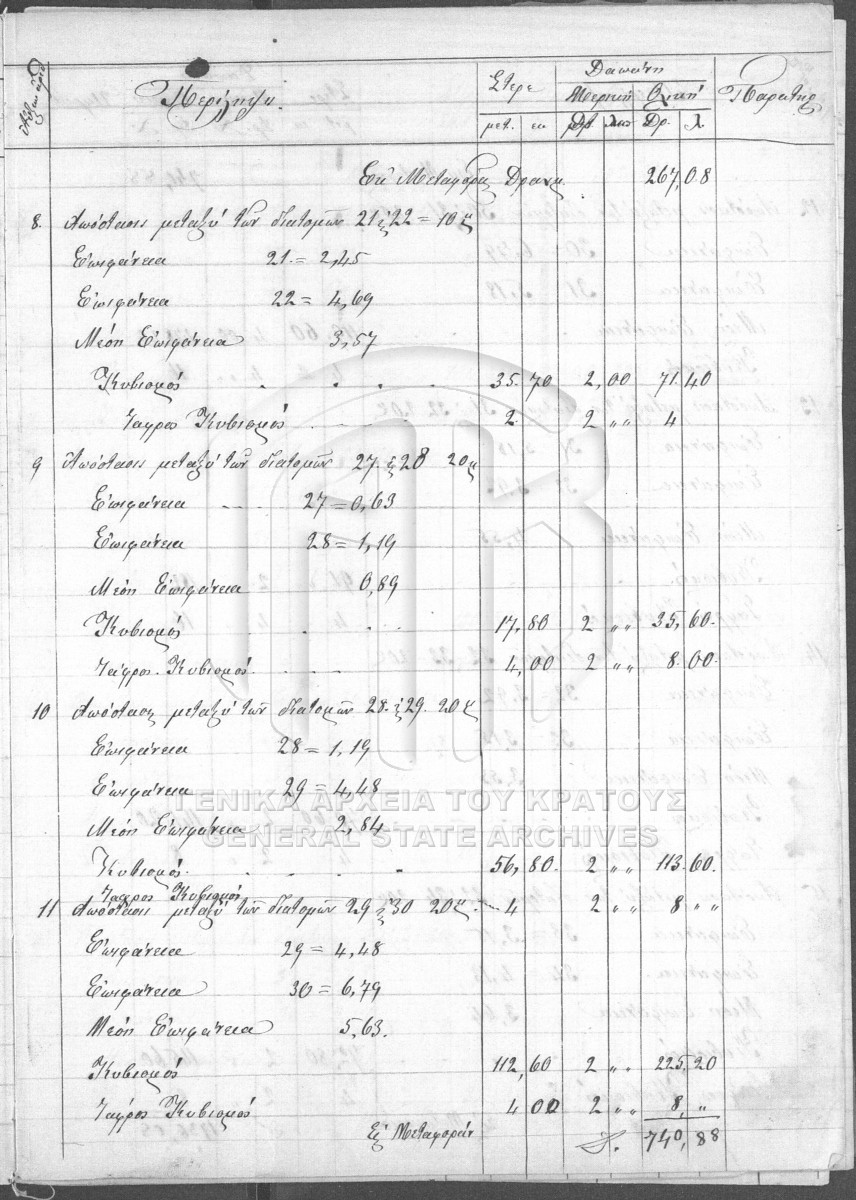 Αὔξων ἀριθ
Περίληψις
Στερε
Δαπάνη
Παρατηρ
Μερική Ὁλική
μετ. εκ Δρ. Λεπ Δρ. Λ.
Ἐκ Μεταφορᾶς Δραχμ. 267,08
8. Ἀπόστασις μεταξύ τῶν διατομῶν 21 ἕ 22 = 10 μ
Ἐπιφάνεια 21 = 2,45
Ἐπιφάνεια 22 = 4,69
Μέση Ἐπιφάνεια 3,57
Κυβισμός . . . . 35.70 2,00 71.40
Τάφρος Κυβισμός . . . . 2 2 „ „ 4
9 Ἀπόστασις μεταξύ τῶν διατομῶν 27. ἕ 28 20 μ
Ἐπιφάνεια 27 = 0,63
Ἐπιφάνεια 28 = 1,19
Μέση Ἐπιφάνεια 0,89
Κυβισμός . . . 17,80 2 „ „ 35,60.
Τάφρος. Κυβισμός. . . . 4,00 2 „ „ 8.00.
10 Ἀπόστασις μεταξύ τῶν διατομῶν 28. ἕ 29. 20 μ
Ἐπιφάνεια 28 = 1,19
Ἐπιφάνεια 29 = 4,48
ΓΕΝΙΚΑ ΑΡΧΕΙΑ ΤΟΥ ΚΡΑΤΟΥΣ
Μέση Ἐπιφάνεια 2,84
GENERAL STATE ARCHIVES
Κυβισμός. . . . . 56,80. 2 „ „ 113.60.
Τάφρος Κυβισμός 4 2 „ „ 8 „ „
11 Ἀπόστασις μεταξύ τῶν διατομῶν 29 ἕ 30 20 μ.
Ἐπιφάνεια 29 = 4,48
Ἐπιφάνεια 30 = 6,79
Μέση Ἐπιφάνεια 5,63.
Κυβισμός 112,60 2 „ „ 225,20
Τάφρος Κυβισμός 4 00 2 „ „ 8, „
Εἰς Μεταφοράν Δ. 740,88